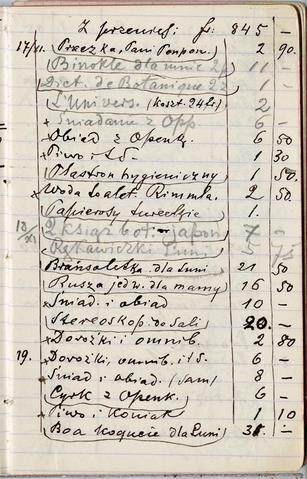 Z przenies. fr. 845 —
17/XI. Przczka, Pani Ponpon. 2 90.
Binokle dla mnie 2 p. 11 —
Dict. de Botanique 2 z. 1 —
L'Univers. (koszt. 24 fr) 2 —
+ Śniadanie z Opp 6 —
× Obiad z Openk. 6 50
+ Piwo i LS. 1 30
Plastron hygieniczny 1 50.
× Woda toalet. Rimmla. 2 50
Papierosy tureckie 1.
18/XI 2 książ. bot. japon 7 —
Rękawiczki Luni 5 75
Bransoletka dla Luni 21 50
Rusza jedw. dla mamy 16 50
× Śniad. i obiad 10 —
Stereoskop. do Sali 20. —
× Dorożki i omnib. 2 80
19. × Dorożki, omnib. i LS. 6 —
Śniad i obiad. (sam) 8 —
Cyrk z Openk. 6 —
× Piwo i Koniak 1 10
Boa kogucie dla Luni 31. —